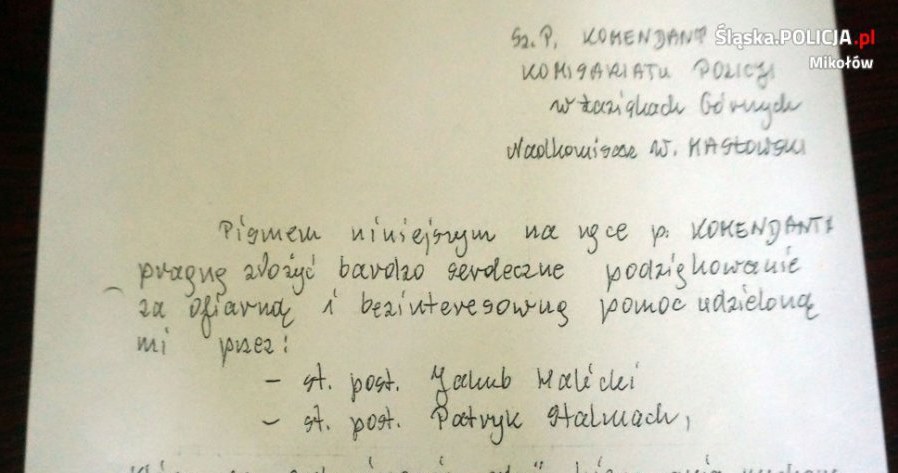 Śląska.POLICJA.pl
Mikołów
Sz. P. KOMENDANT
KOMISARIATU POLICJI
w Łaziskach Górnych
Nadkomisarz W. MASŁOWSKI
Pismem niniejszym na ręce p. KOMENDANTA
pragnę złożyć bardzo serdeczne podziękowanie
za ofiarną i bezinteresowną pomoc udzieloną
mi przez:
- st. post. Jakub Malécki
- st. post. Patryk Stalmach,